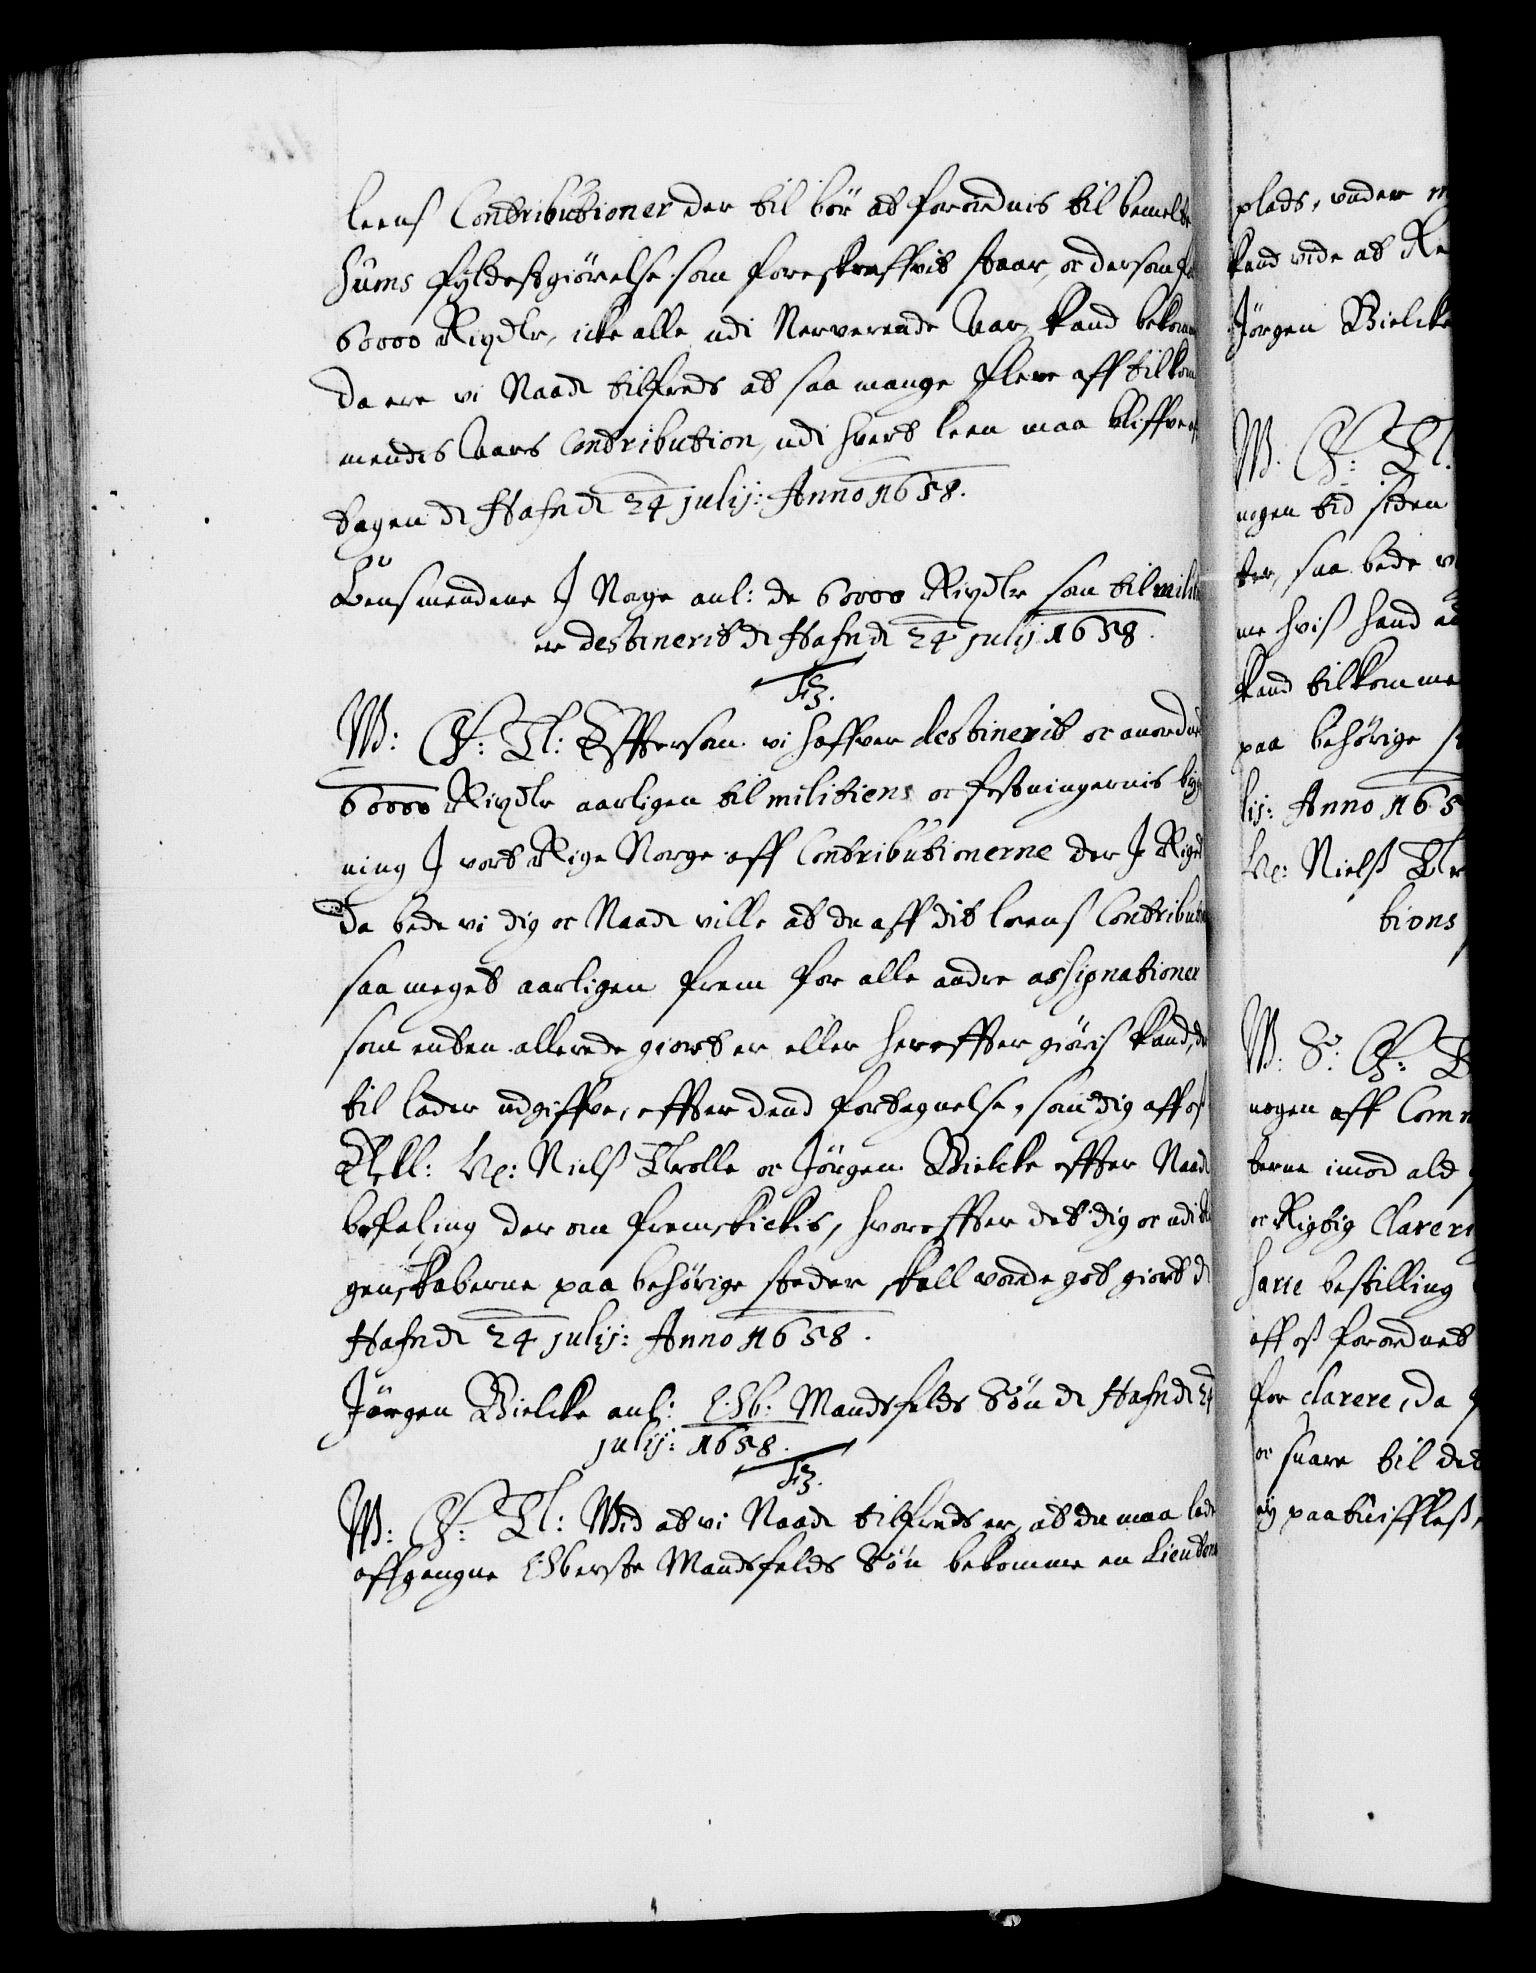 leens Contributioner der til bör at forordnis til bemelte
Sums fyldestgiörelse som foreskreffvit staar, oc dersom
60000 Rixdlr, icke alle udi Nerverende Aar kand bekom
da ere vi Naad tilfreds at saa mange flere aff tilkom
mendis Aars Contribution, udi hvert leen maa bliffve
tagen &c Hafn &c 24 julij: Anno 1658.
Lensmendene J Norge anl: de 60000 Rixdlr som til milit
er destinerit &c Hafn &c 24 julij 1658.
F3.
W: G: T: Effterson vi haffver destinerit oc anordn
60000 Rixdlr aarligen til militiens oc festningernis byg
ning J vort Rige Norge aff Contributionerne der J Rigt
Da bede vi dig oc Naad ville at du aff dit leens Contribut
saa meget aarligen frem for alle andre assignationer
som enten allerede giort er eller hereffter giöris kand, der
til lader udgiffve, effter dend fortegnelse, som dig aff os
Elskl: Hr: Niels Trolle oc Jörgen Bielcke effter Naad
befaling der om fremskickis, hvoreffter det dig oc udi R
genskaberne paa behörige steder skall vorde got giort &c
Hafn &c 24 julij: Anno 1658.
Jörgen Bielcke anl: Ob: Mandsfelds Sön &c Hafn &c 24
julij: 1658.
F3.
W: G: T: Wid at vi Naad tilfreds er, at du maa lade
affgangne Oberste Mandsfelds Sön bekomme en Lieuten
plads, under
kand vide at Re
Jörgen Bielcke
W. G: T.
nogen tid siden
ter, saa bede vi
me hvis hand
kand tilkomme
paa behörige
lij: Anno 165
Hr: Niels Tr
tions
W. S: G: T
nogen aff Com
terne imod ald
oc Rigtig Clarer
harie bestilling
aff os forordnet
for clarere, da
oc suare til det
ey paatuiffles,